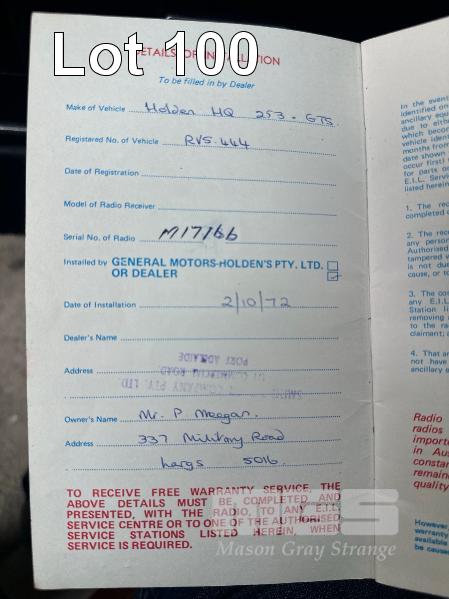 Lot 100
DETAILS OF INSTALLATION
To be filled in by Dealer
Make of Vehicle Holden HQ 253. GTS.
Registered No. of Vehicle RVS.444
Date of Registration
Model of Radio Receiver
Serial No. of Radio M17166
Installed by GENERAL MOTORS-HOLDEN'S PTY. LTD.
OR DEALER
Date of Installation 2/10/72
Dealer's Name
Address
COMMERCIAL ROAD
PORT ADELAIDE
COMPANY PTY. LTD.
Owner's Name Mr. P. Meegan.
Address 337 Military Road
Largs 5016
TO RECEIVE FREE WARRANTY SERVICE, THE
ABOVE DETAILS MUST BE COMPLETED AND
PRESENTED, WITH THE RADIO, TO ANY E.I.L.
SERVICE CENTRE OR TO ONE OF THE AUTHORISED
SERVICE STATIONS LISTED HEREIN, WHEN
SERVICE IS REQUIRED.
In the event
identified on
ancillary equi
due to eithe
which becor
vehicle ident
months from
date shown
occur first)
for parts o
E.I.L. Servi
listed herein
1. The rec
completed
2. The rece
any person
Authorised
tampered v
is not du
cause, or to
3. The cos
any E.I.L.
Station li
removing
to the ra
claimant;
4. That ar
not have
ancillary e
Radio
radios
importe
in Aus
constar
remain
quality
However,
warranty
available
be cause
Mason Gray Strange